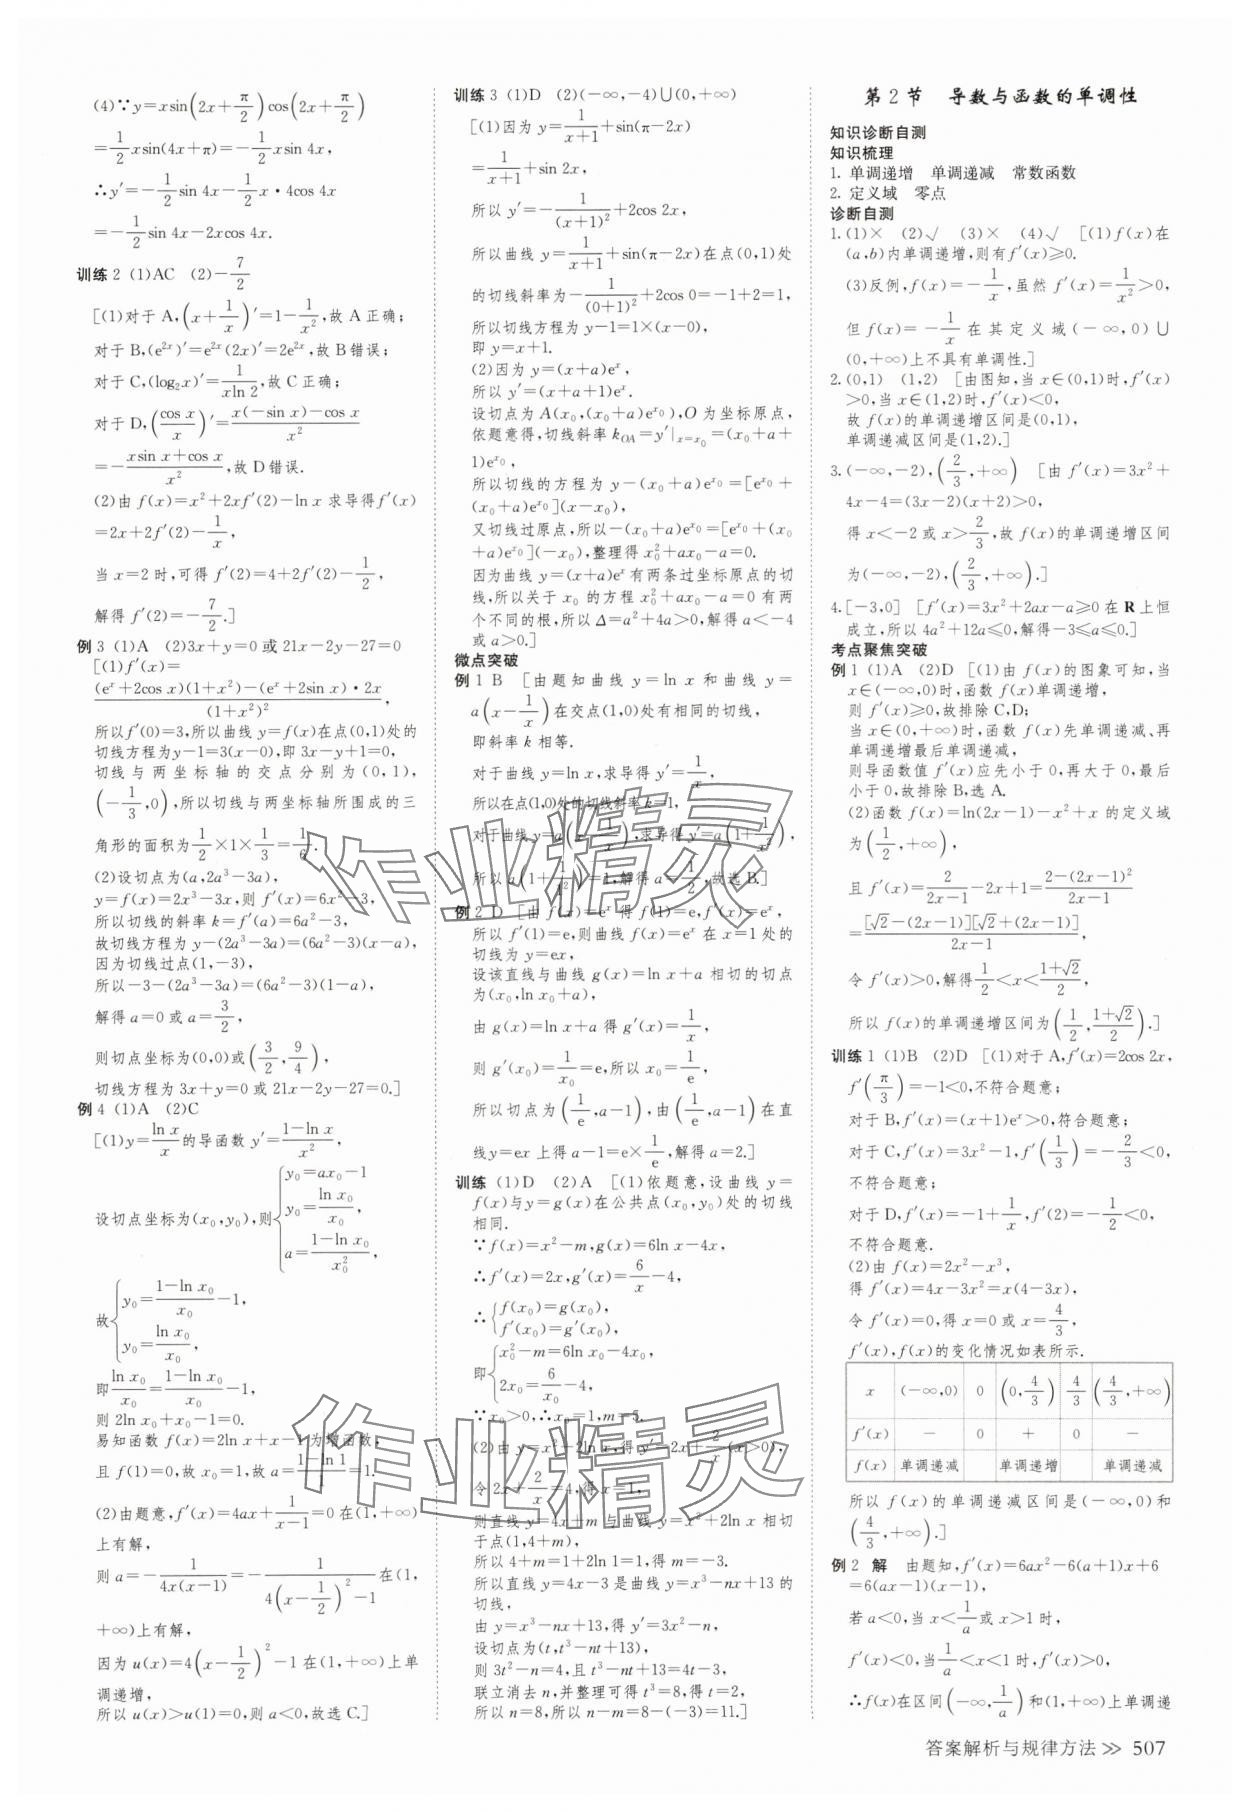 (4)∵y=xsin(2x+π/2)cos(2x+π/2)
=1/2xsin(4x+π)=-1/2xsin 4x,
∴y′=-1/2sin 4x-1/2x·4cos 4x
=-1/2sin 4x-2xcos 4x.
训练2 (1)AC (2)-7/2
[(1)对于A,(x+1/x)′=1-1/x²,故A正确;
对于B,(e²ˣ)′=e²ˣ(2x)′=2e²ˣ,故B错误;
对于C,(log₂x)′=1/(xln 2),故C正确;
对于D,(cos x/x)′=(x(-sin x)-cos x)/x²
=-(xsin x+cos x)/x²,故D错误.
(2)由f(x)=x²+2xf′(2)-ln x求导得f′(x)
=2x+2f′(2)-1/x,
当x=2时,可得f′(2)=4+2f′(2)-1/2,
解得f′(2)=-7/2.]
例3 (1)A (2)3x+y=0或21x-2y-27=0
[(1)f′(x)=
((eˣ+2cos x)(1+x²)-(eˣ+2sin x)·2x)/(1+x²)²,
所以f′(0)=3,所以曲线y=f(x)在点(0,1)处的
切线方程为y-1=3(x-0),即3x-y+1=0,
切线与两坐标轴的交点分别为(0,1),
(-1/3,0),所以切线与两坐标轴所围成的三
角形的面积为1/2×1×1/3=1/6.
(2)设切点为(a,2a³-3a),
y=f(x)=2x³-3x,则f′(x)=6x²-3,
所以切线的斜率k=f′(a)=6a²-3,
故切线方程为y-(2a³-3a)=(6a²-3)(x-a),
因为切线过点(1,-3),
所以-3-(2a³-3a)=(6a²-3)(1-a),
解得a=0或a=3/2,
则切点坐标为(0,0)或(3/2,9/4),
切线方程为3x+y=0或21x-2y-27=0.]
例4 (1)A (2)C
[(1)y=ln x/x的导函数y′=(1-ln x)/x²,
设切点坐标为(x₀,y₀),则{y₀=ax₀-1
y₀=ln x₀/x₀,
a=(1-ln x₀)/x₀²,
故{y₀=(1-ln x₀)/x₀-1,
y₀=ln x₀/x₀,
即ln x₀/x₀=(1-ln x₀)/x₀-1,
则2ln x₀+x₀-1=0.
易知函数f(x)=2ln x+x-1为增函数,
且f(1)=0,故x₀=1,故a=(1-ln 1)/1=1.
(2)由题意,f′(x)=4ax+1/(x-1)=0在(1,+∞)
上有解,
则a=-1/(4x(x-1))=-1/(4(x-1/2)²-1)在(1,
+∞)上有解,
因为u(x)=4(x-1/2)²-1在(1,+∞)上单
调递增,
所以u(x)>u(1)=0,则a<0,故选C.]
训练3 (1)D (2)(-∞,-4)∪(0,+∞)
[(1)因为y=1/(x+1)+sin(π-2x)
=1/(x+1)+sin 2x,
所以y′=-1/(x+1)²+2cos 2x,
所以曲线y=1/(x+1)+sin(π-2x)在点(0,1)处
的切线斜率为-1/(0+1)²+2cos 0=-1+2=1,
所以切线方程为y-1=1×(x-0),
即y=x+1.
(2)因为y=(x+a)eˣ,
所以y′=(x+a+1)eˣ.
设切点为A(x₀,(x₀+a)e^x₀),O为坐标原点,
依题意得,切线斜率k_OA=y′|x=x₀=(x₀+a+
1)e^x₀,
所以切线的方程为y-(x₀+a)e^x₀=[e^x₀+
(x₀+a)e^x₀](x-x₀),
又切线过原点,所以-(x₀+a)e^x₀=[e^x₀+(x₀
+a)e^x₀](-x₀),整理得x₀²+ax₀-a=0.
因为曲线y=(x+a)eˣ有两条过坐标原点的切
线,所以关于x₀的方程x₀²+ax₀-a=0有两
个不同的根,所以Δ=a²+4a>0,解得a<-4
或a>0.]
微点突破
例1 B [由题知曲线y=ln x和曲线y=
a(x-1/x)在交点(1,0)处有相同的切线,
即斜率k相等.
对于曲线y=ln x,求导得y′=1/x,
所以在点(1,0)处的切线斜率k=1,
对于曲线y=a(x-1/x),求导得y′=a(1+1/x²),
所以a(1+1/1²)=1,解得a=1/2,故选B.]
例2 D [由f(x)=eˣ得f(1)=e,f′(x)=eˣ,
所以f′(1)=e,则曲线f(x)=eˣ在x=1处的
切线为y=ex,
设该直线与曲线g(x)=ln x+a相切的切点
为(x₀,ln x₀+a),
由g(x)=ln x+a得g′(x)=1/x,
则g′(x₀)=1/x₀=e,所以x₀=1/e,
所以切点为(1/e,a-1),由(1/e,a-1)在直
线y=ex上得a-1=e×1/e,解得a=2.]
训练 (1)D (2)A [(1)依题意,设曲线y=
f(x)与y=g(x)在公共点(x₀,y₀)处的切线
相同.
∵f(x)=x²-m,g(x)=6ln x-4x,
∴f′(x)=2x,g′(x)=6/x-4,
∴{f(x₀)=g(x₀),
f′(x₀)=g′(x₀),
即{x₀²-m=6ln x₀-4x₀,
2x₀=6/x₀-4,
∵x₀>0,∴x₀=1,m=5.
(2)由y=x²+2ln x,得y′=2x+2/x(x>0),
令2x+2/x=4,得x=1,
则直线y=4x+m与曲线y=x²+2ln x相切
于点(1,4+m),
所以4+m=1+2ln 1=1,得m=-3.
所以直线y=4x-3是曲线y=x³-nx+13的
切线,
由y=x³-nx+13,得y′=3x²-n,
设切点为(t,t³-nt+13),
则3t²-n=4,且t³-nt+13=4t-3,
联立消去n,并整理可得t³=8,得t=2,
所以n=8,所以n-m=8-(-3)=11.]
第2节 导数与函数的单调性
知识诊断自测
知识梳理
1. 单调递增 单调递减 常数函数
2. 定义域 零点
诊断自测
1.(1)× (2)√ (3)× (4)√ [(1)f(x)在
(a,b)内单调递增,则有f′(x)≥0.
(3)反例,f(x)=-1/x,虽然f′(x)=1/x²>0,
但f(x)=-1/x在其定义域(-∞,0)∪
(0,+∞)上不具有单调性.]
2.(0,1) (1,2) [由图知,当x∈(0,1)时,f′(x)
>0,当x∈(1,2)时,f′(x)<0,
故f(x)的单调递增区间是(0,1),
单调递减区间是(1,2).]
3.(-∞,-2),(2/3,+∞) [由f′(x)=3x²+
4x-4=(3x-2)(x+2)>0,
得x<-2或x>2/3,故f(x)的单调递增区间
为(-∞,-2),(2/3,+∞).]
4.[-3,0] [f′(x)=3x²+2ax-a≥0在R上恒
成立,所以4a²+12a≤0,解得-3≤a≤0.]
考点聚焦突破
例1 (1)A (2)D [(1)由f(x)的图象可知,当
x∈(-∞,0)时,函数f(x)单调递增,
则f′(x)≥0,故排除C,D;
当x∈(0,+∞)时,函数f(x)先单调递减、再
单调递增最后单调递减,
则导函数值f′(x)应先小于0,再大于0,最后
小于0,故排除B,选A.
(2)函数f(x)=ln(2x-1)-x²+x的定义域
为(1/2,+∞),
且f′(x)=2/(2x-1)-2x+1=(2-(2x-1)²)/(2x-1)
=[√2-(2x-1)][√2+(2x-1)]/(2x-1),
令f′(x)>0,解得1/2<x<(1+√2)/2,
所以f(x)的单调递增区间为(1/2,(1+√2)/2).]
训练1 (1)B (2)D [(1)对于A,f′(x)=2cos 2x,
f′(π/3)=-1<0,不符合题意;
对于B,f′(x)=(x+1)eˣ>0,符合题意;
对于C,f′(x)=3x²-1,f′(1/3)=-2/3<0,
不符合题意;
对于D,f′(x)=-1+1/x,f′(2)=-1/2<0,
不符合题意.
(2)由f(x)=2x²-x³,
得f′(x)=4x-3x²=x(4-3x),
令f′(x)=0,得x=0或x=4/3,
f′(x),f(x)的变化情况如表所示.
x (-∞,0) 0 (0,4/3) 4/3 (4/3,+∞)
f′(x) - 0 + 0 -
f(x) 单调递减 单调递增 单调递减
所以f(x)的单调递减区间是(-∞,0)和
(4/3,+∞).]
例2 解 由题知,f′(x)=6ax²-6(a+1)x+6
=6(ax-1)(x-1),
若a<0,当x<1/a或x>1时,
f′(x)<0,当1/a<x<1时,f′(x)>0,
∴f(x)在区间(-∞,1/a)和(1,+∞)上单调递
答案解析与规律方法 >> 507
作业精灵
作业精灵